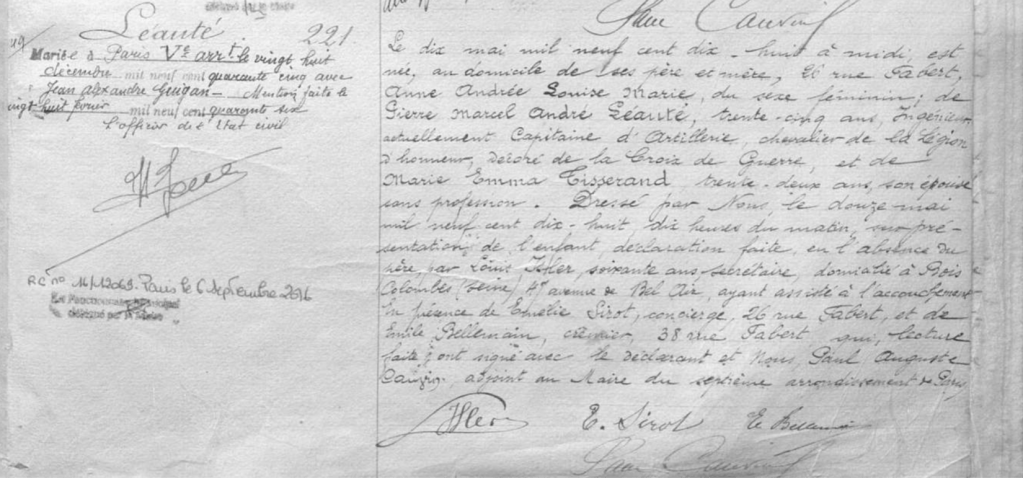 Léauté
221
Mariée à Paris Ve arrt. le vingt huit
décembre mil neuf cent quarante cinq avec
Jean Alexandre Guigan — Mention faite le
vingt huit mil neuf cent quarante six
L'officier de l'Etat civil
RC no Paris le 6 Septembre
Le dix mai mil neuf cent dix-huit à midi, est
née, au domicile de ses père et mère, 26 rue Fabert,
Anne Andrée Louise Marie, du sexe féminin; de
Pierre Marcel André Léauté, trente-cinq ans, Ingénieur,
actuellement Capitaine d'Artillerie, chevalier de la Légion
d'honneur, décoré de la Croix de Guerre, et de
Marie Emma Tisserand, trente-deux ans, son épouse
sans profession. - Dressé par Nous, le douze mai
mil neuf cent dix-huit, dix heures du matin, sur pré-
sentation de l'enfant, déclaration faite, en l'absence du
père, par Louis soixante ans, secrétaire, domicilié à Bois
Colombes (Seine) avenue de Bel Air, ayant assisté à l'accouchement
En présence de Emélie Sirot, concierge, 26 rue Fabert, et de
Emile Bellemain, 38 rue Fabert qui, lecture
faite, ont signé avec le déclarant et Nous, Paul Auguste
adjoint au Maire du septième arrondissement de Paris
E. Sirot